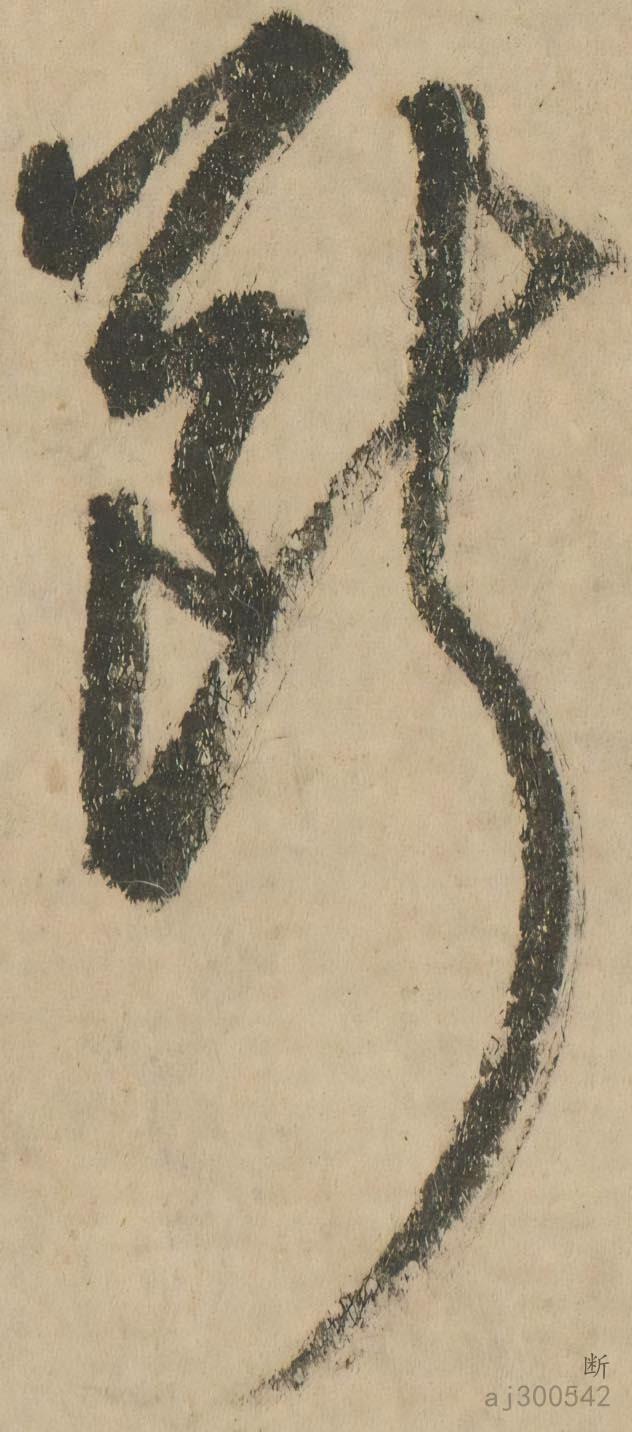 断
断
aj300542